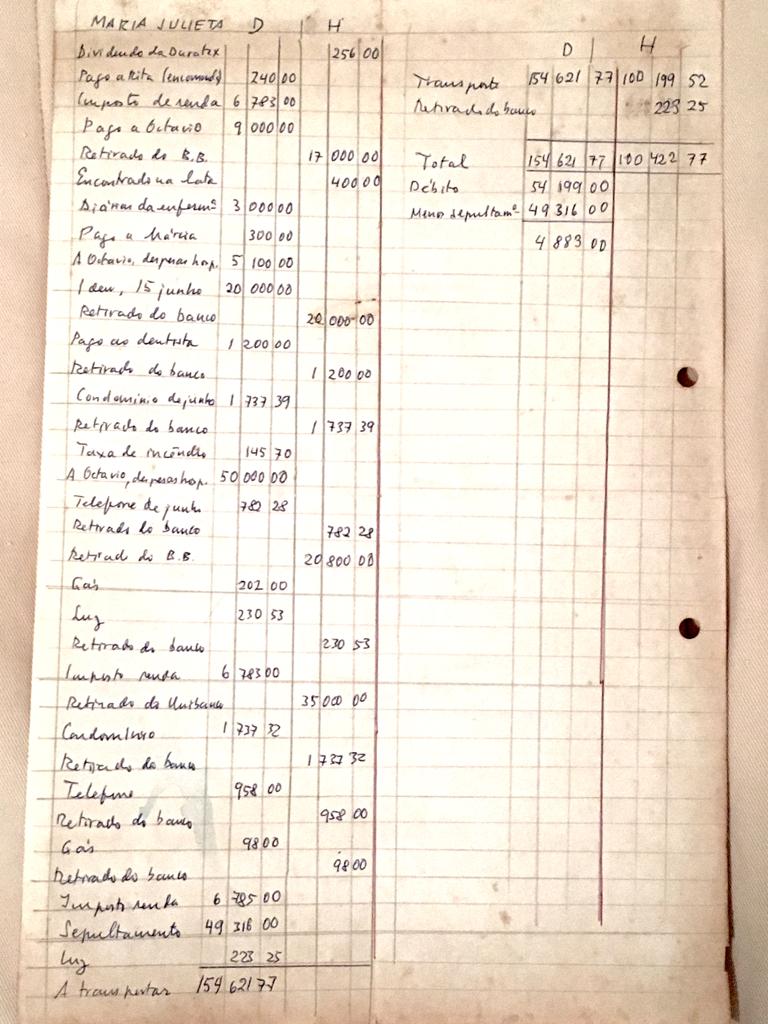 MARIA JULIETA D H
Dividendo da Duratex 256 00
Pago a Rita (encomenda) 240 00
Imposto de renda 6 783 00
Pago a Octavio 9 000 00
Retirado do B.B. 17 000 00
Encontrado na lata 400 00
Diárias da enfermª 3 000 00
Pago a Márcia 300 00
A Octavio, despesas hosp. 5 100 00
Idem, 15 junho 20 000 00
Retirado do banco 20 000 00
Pago ao dentista 1 200 00
Retirado do banco 1 200 00
Condominio de junho 1 737 39
Retirado do banco 1 737 39
Taxa de incêndio 145 70
A Octavio, despesas hosp. 50 000 00
Telefone de junho 782 28
Retirado do banco 782 28
Retirad do B.B. 20 800 00
Gás 202 00
Luz 230 53
Retirado do banco 230 53
Imposto renda 6 783 00
Retirado do Unibanco 35 000 00
Condomínio 1 737 32
Retirado do banco 1 737 32
Telefone 958 00
Retirado do banco 958 00
Gás 98 00
Retirado do banco 98 00
Imposto renda 6 785 00
Sepultamento 49 316 00
Luz 223 25
A transportar 154 621 77
D H
Transporte 154 621 77 100 199 52
Retirado do banco 223 25
Total 154 621 77 100 422 77
Débito 54 199 00
Menos sepultamº 49 316 00
4 883 00